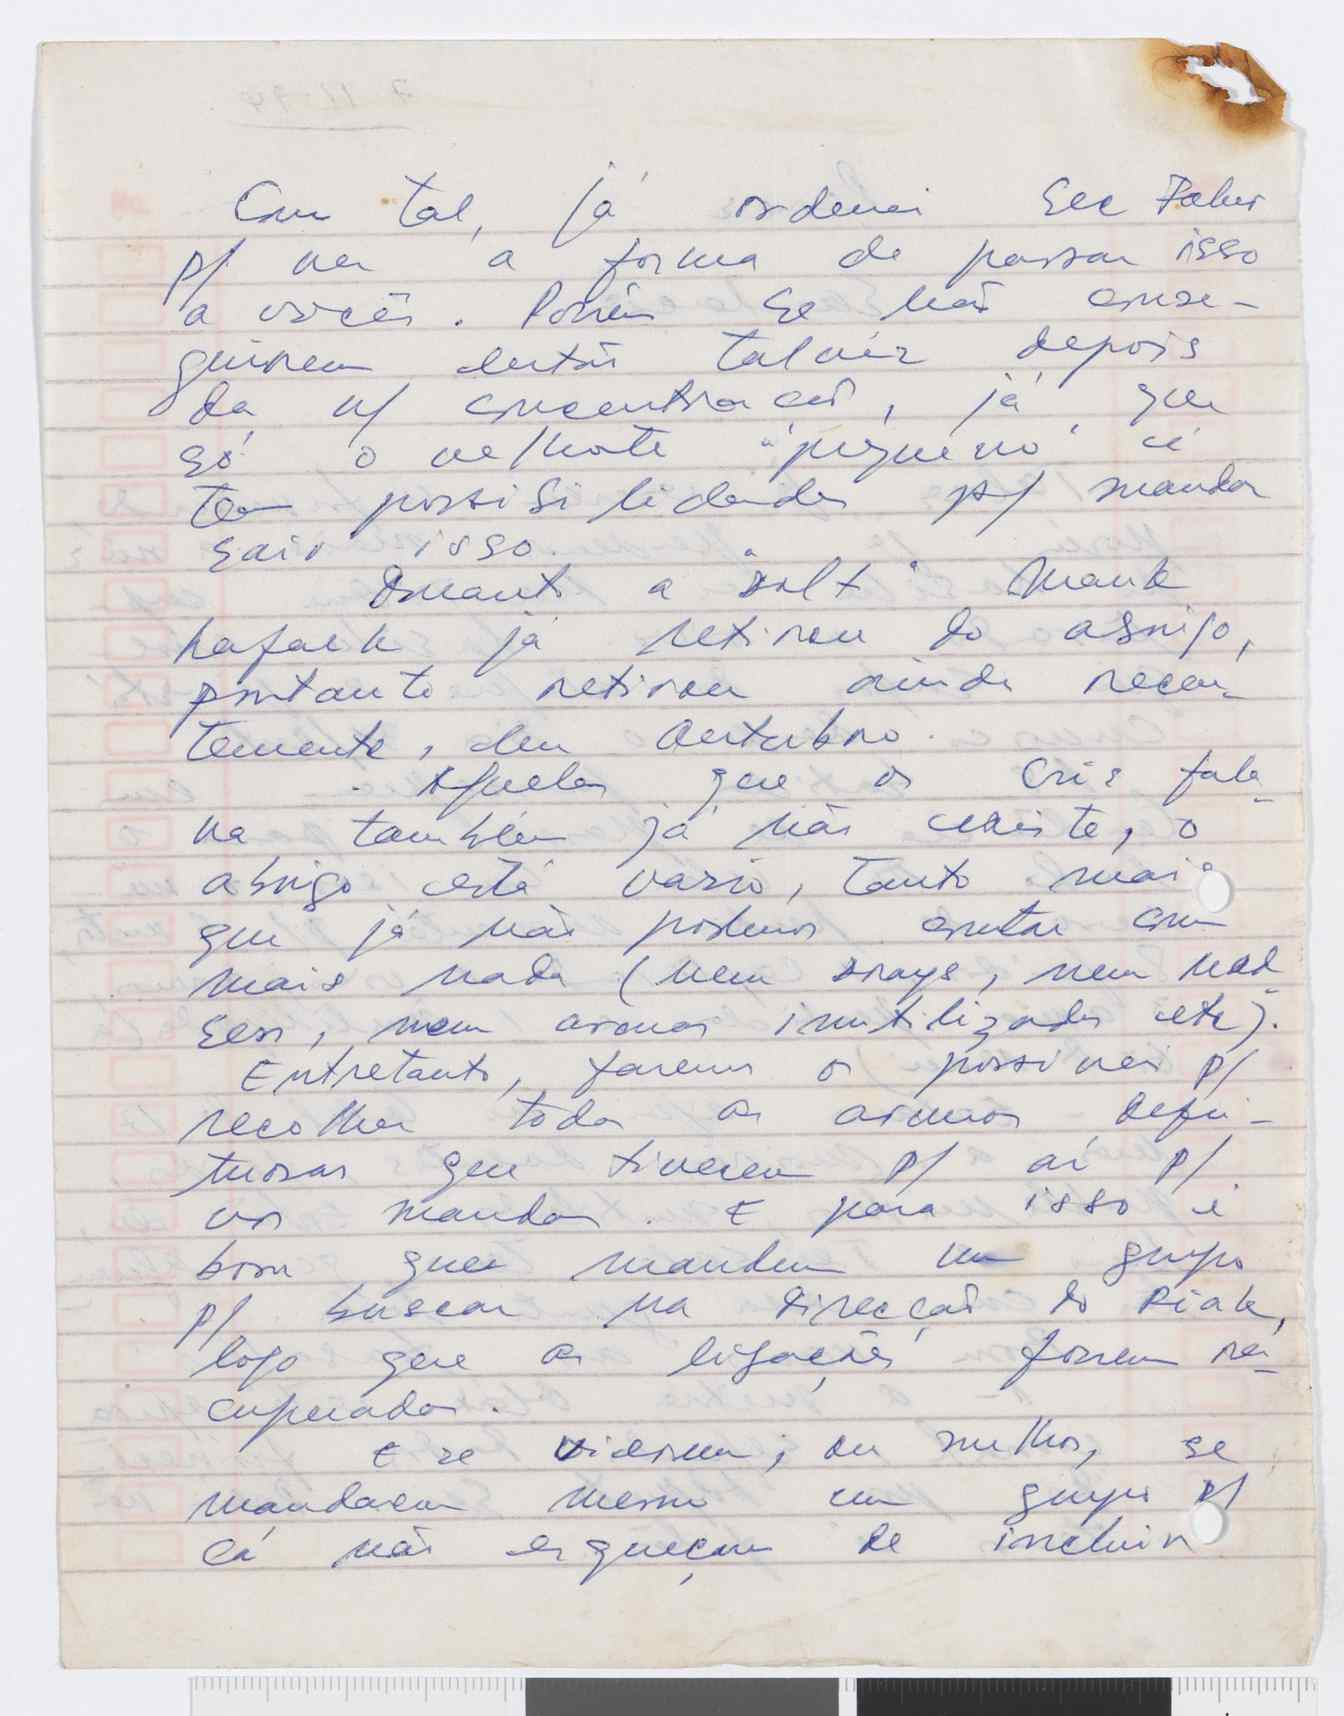 Com tal, já ordenei Sec Paker
p/ ver a forma de passar isso
a vocês. Porém se não conse-
guirem então talvez depois
da n/ concentração, já que
só o velhote "pequeno" é
tem possibilidades p/ mandar
sair isso.
Quanto a "solt" Mauk
Rafaek já retirou do abrigo,
portanto retirou ainda recen-
temente, em Outubro.
Aqueles que o Cris fala-
va também já não existe, o
abrigo está vazio, tanto mais
que já não podemos contar com
mais nada (nem, nem
, nem armas inutilizadas etc).
Entretanto, farem o possivel p/
recolher todas as armas defei-
tuosas que tiverem p/ aí p/
vos mandar. E para isso é
bom que mandem um grupo
p/ buscar na direcção do Diak,
logo que as ligações forem re-
cuperadas.
E se vierem, ou melhor, se
mandarem mesmo um grupo p/
cá não esqueçam de incluir